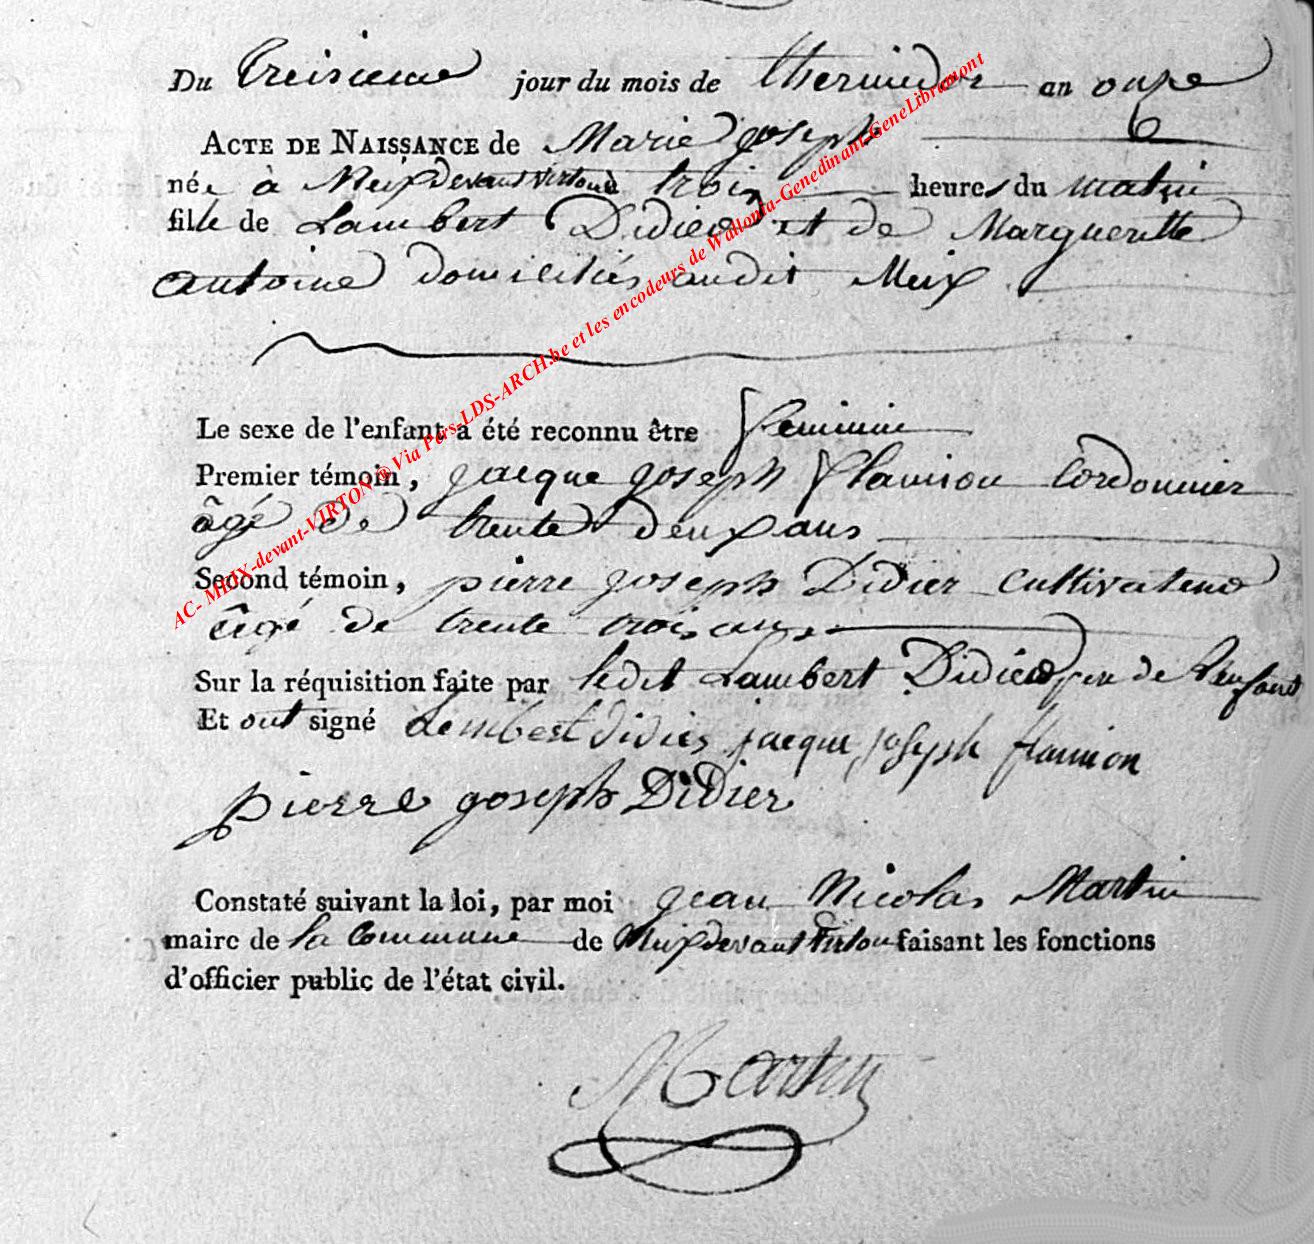 Du treisieme jour du mois de thermidor an onze
ACTE DE NAISSANCE de Marie joseph
née à Meix devant virton à trois heures du matin
fille de Lambert Didier et de Margueritte
antoine domiciliés audit Meix
Le sexe de l'enfant a été reconnu être feminin
Premier témoin, jacque joseph flamion Cordonnier
âgé de trente deux ans
Second témoin, pierre joseph Didier Cultivateur
âgé de trente trois ans
Sur la réquisition faite par ledit Lambert Didier per de l'enfant
Et ont signé Lembert didier jacque joseph flamion
pierre joseph Didier
Constaté suivant la loi, par moi jean Nicolas Martin
maire de la Commune de Meix devant virton faisant les fonctions
d'officier public de l'état civil.
Martin
AC- MEIX-devant-VIRTON ® Via Pers-LDS-ARCH.be et les encodeurs de Wallonia-Genedinant-GeneLibramont